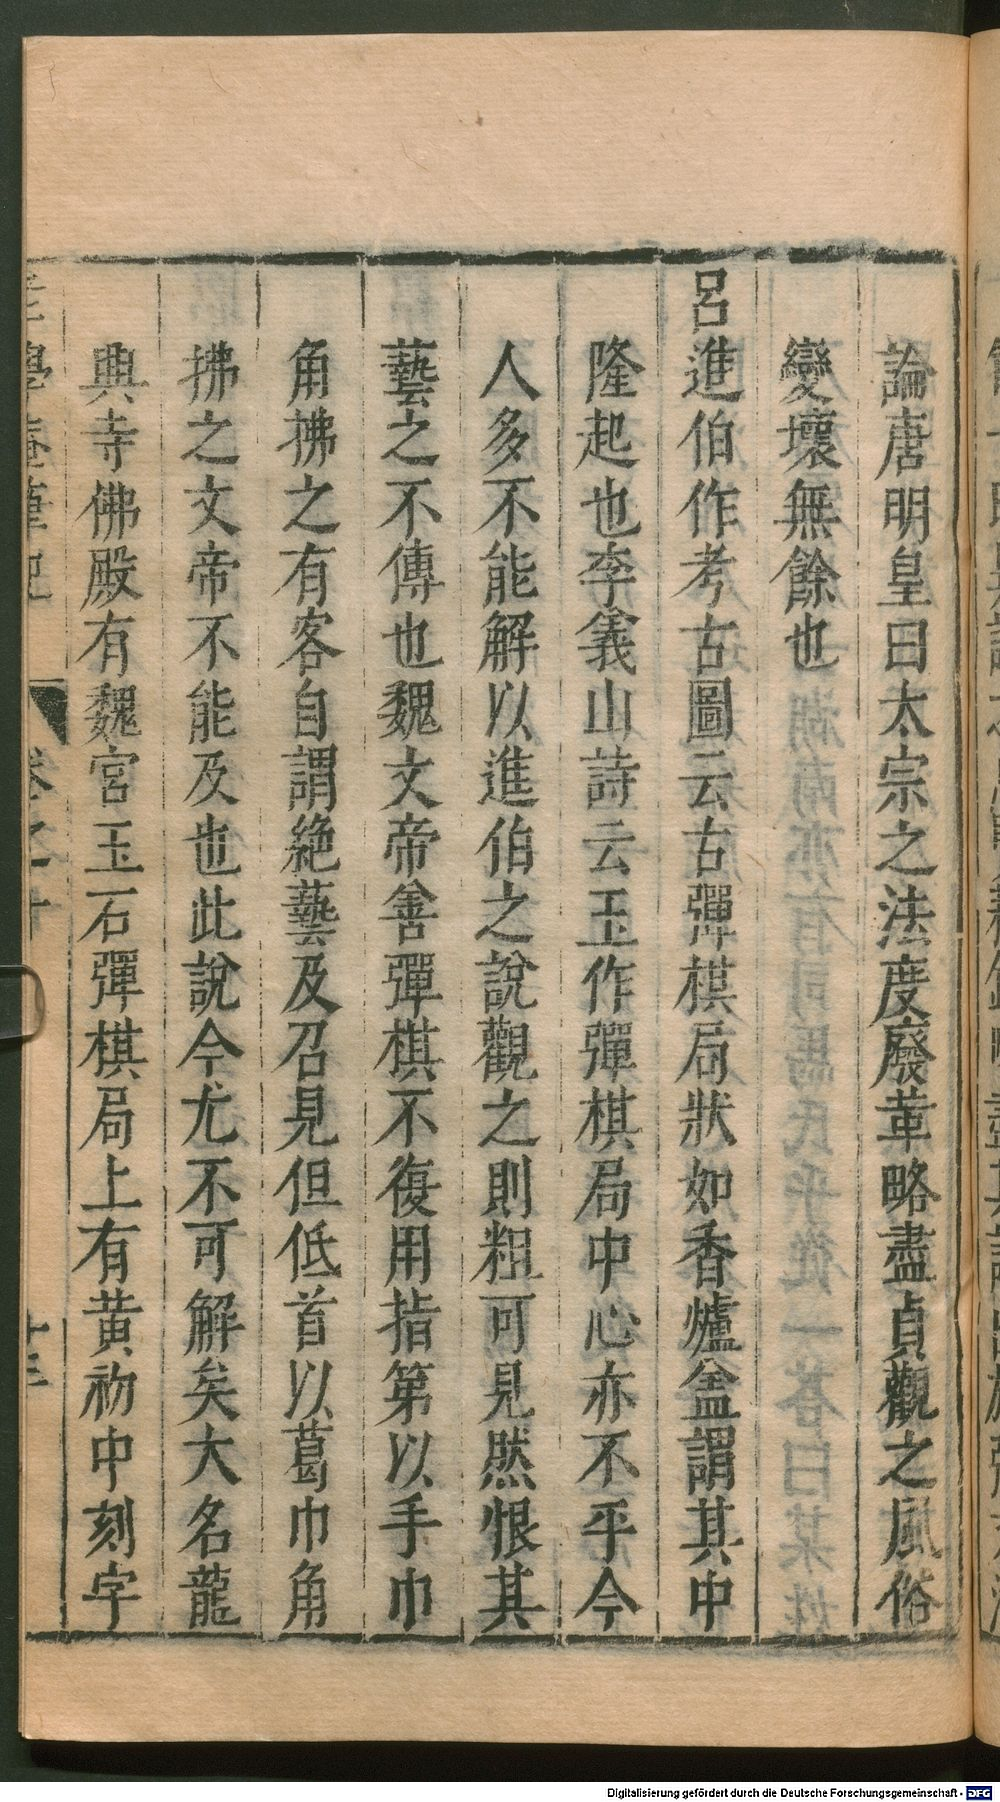 論唐明皇曰太宗之法度廢革略盡貞觀之風俗
變壞無餘也
呂進伯作考古圖云古彈棋局狀如香爐葢謂其中
隆起也李義山詩云玉作彈棋局中心亦不平今
人多不能解以進伯之說觀之則粗可見然恨其
藝之不傳也魏文帝善彈棋不復用指第以手巾
角拂之有客自謂絶藝及召見但低首以葛巾角
拂之文帝不能及也此說今尤不可解矣大名龍
興寺佛殿有魏宮玉石彈棋局上有黃初中刻字
Digitalisierung gefördert durch die Deutsche Forschungsgemeinschaft - DFG